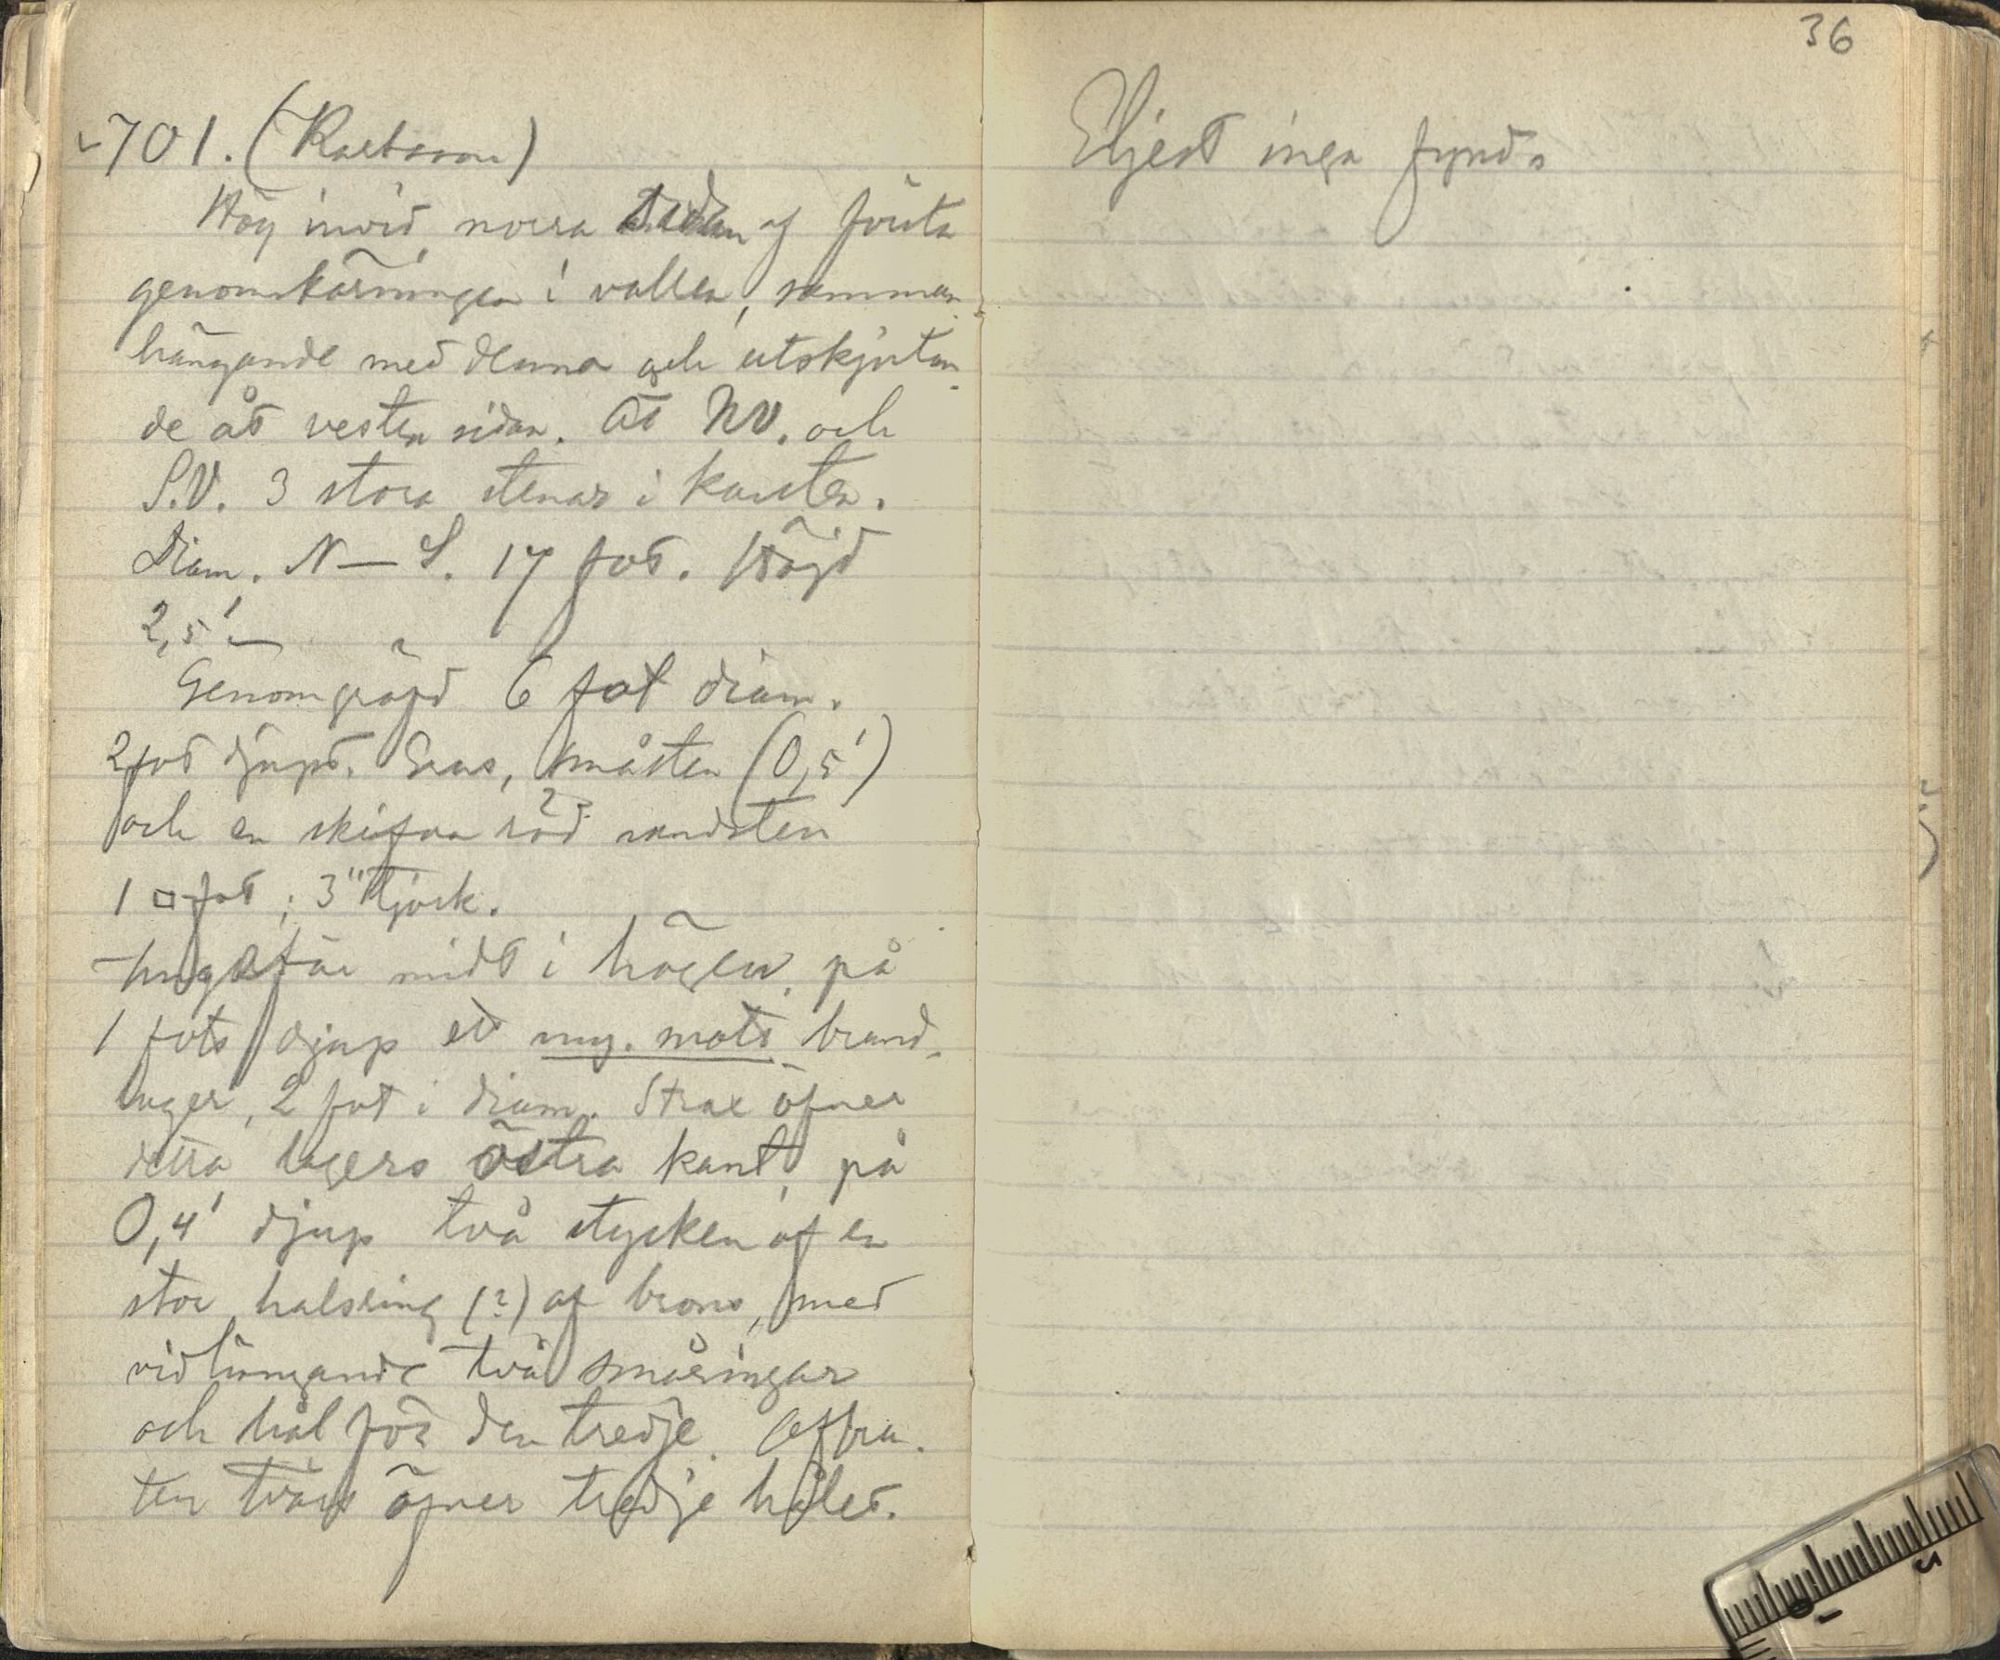 701. (Karlsson)
Hög invid norra sidan af första
genomskärningen i vallen, samman-
hängande med denna och utskjutan-
de åt vestra sidan. Åt NV. och
S.V. 3 stora stenar i kanten.
Diam. N – S. 17 fot. Höjd
2,5' –
Genomgräfd 6 fot diam.
2 fot djupt. Grus, småsten (0,5')
och en skifva röd sandsten
1 □ fot ; 3" tjock.
Ungefär midt i högen, på
1 fots djup ett my. matt brand-
lager, 2 fot i diam. Strax öfver
detta lagers östra kant, på
0,4' djup två stycken af en
stor halsring (?) af brons, med
vidhängande två småringar
och hål för den tredje. Afbru-
ten tvärs öfver tredje hålet.
36
Eljest inga fynd.